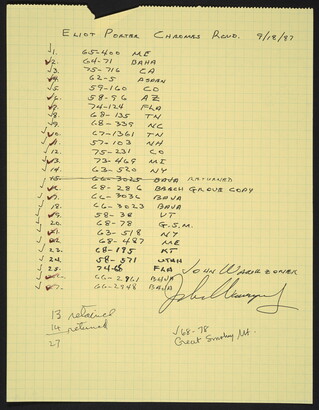 ELIOT PORTER CHROMES RCVD. 9/18/87
1. 65-400 ME
2. 64-71 BAHA
3. 75-716 CA
4. 62-5
5. 59-160 CO
6. 58-96 AZ
7. 74-124 FLA
8. 68-135 TN
9. 68-339 NC
10. 67-1361 TN
11. 57-103 NH
12. 75-231 CO
13. 73-469 ME
14. 63-520 NY
15. 66-3025 BAJA RETURNED
16. 68-286 BEECH GROVE COPY
17. 66-3036 BAJA
18. 66-3023 BAJA
19. 58-38 UT
20. 68-78 G.S.M.
21. 63-518 NY
22. 68-487 ME
23. 68-185 KT
24. 58-571 UTAH
25. FLA
26. 66-2961 BAJA
27. 66-2948 BAJA
JOHN
13 retained
14 returned
27
√68-78
Great Smokey Mt.